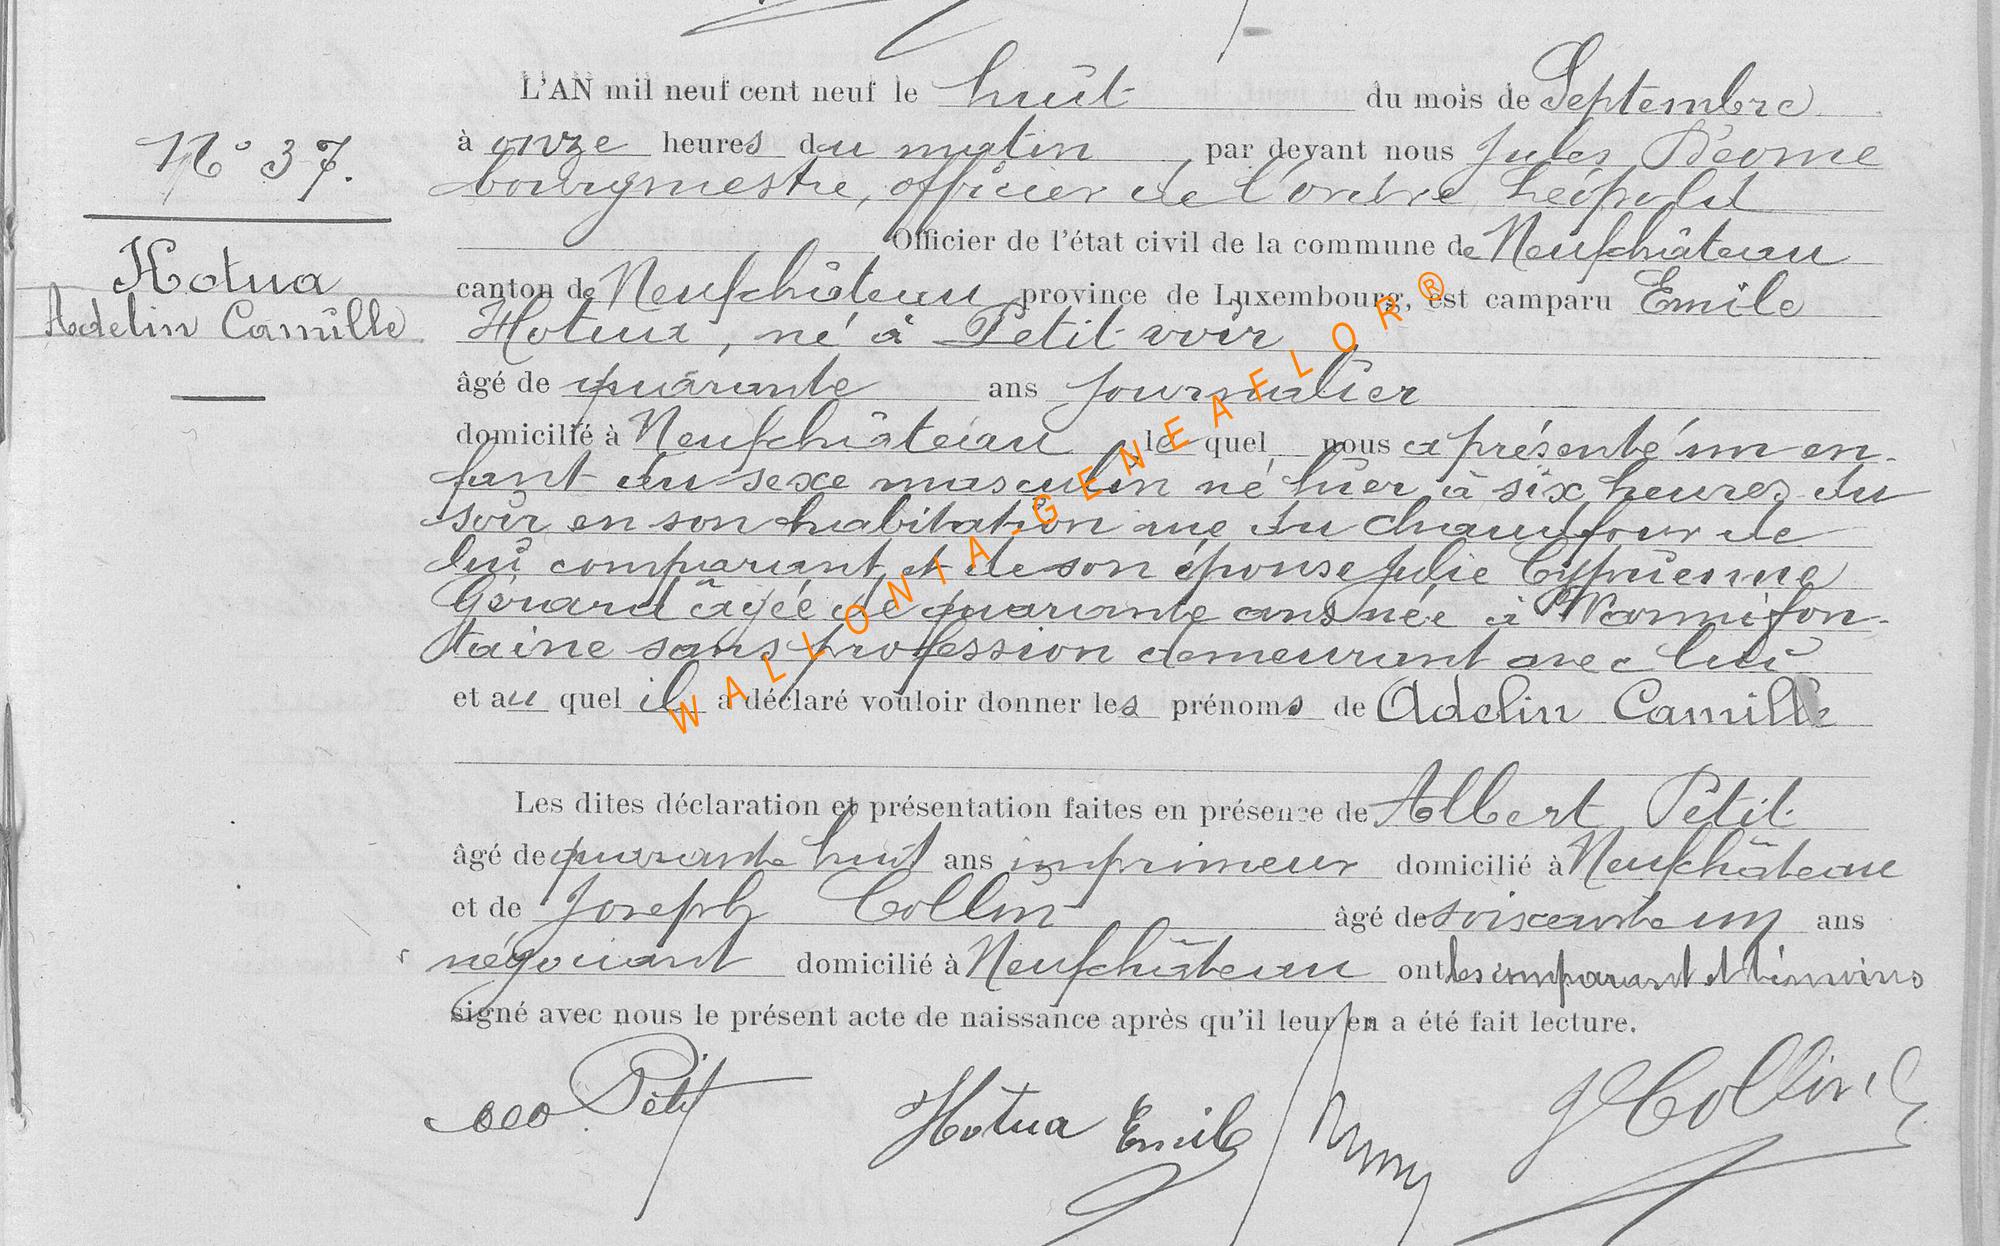 L'AN mil neuf cent neuf le huit du mois de Septembre
N° 37.
à onze heures du matin, par devant nous Jules Déome
bourgmestre, officier de l'ordre Léopold
Officier de l'état civil de la commune de Neufchâteau
Hotua
canton de Neufchâteau province de Luxembourg, est camparu Emile
Adelin Camille
Hotua, né à Petit-voir
âgé de quarante ans journalier
domicilié à Neufchâteau, le quel nous a présenté un en-
fant du sexe masculin né hier à six heures du
soir en son habitation rue du Chaudfour de
lui comparant et de son épouse Julie Cyprienne
Gérard âgée de quarante ans née à Warmifon-
taine sans profession demeurant avec lui
et au quel il a déclaré vouloir donner les prénoms de Adelin Camille
WALLONIA-GENEAFLOR®
Les dites déclaration et présentation faites en présence de Albert Petit
âgé de quarante huit ans imprimeur domicilié à Neufchâteau
et de Joseph Collin âgé de soixante un ans
négociant domicilié à Neufchâteau ont les comparant et témoins
signé avec nous le présent acte de naissance après qu'il leur en a été fait lecture.
Petit Hotua Emile J Collin